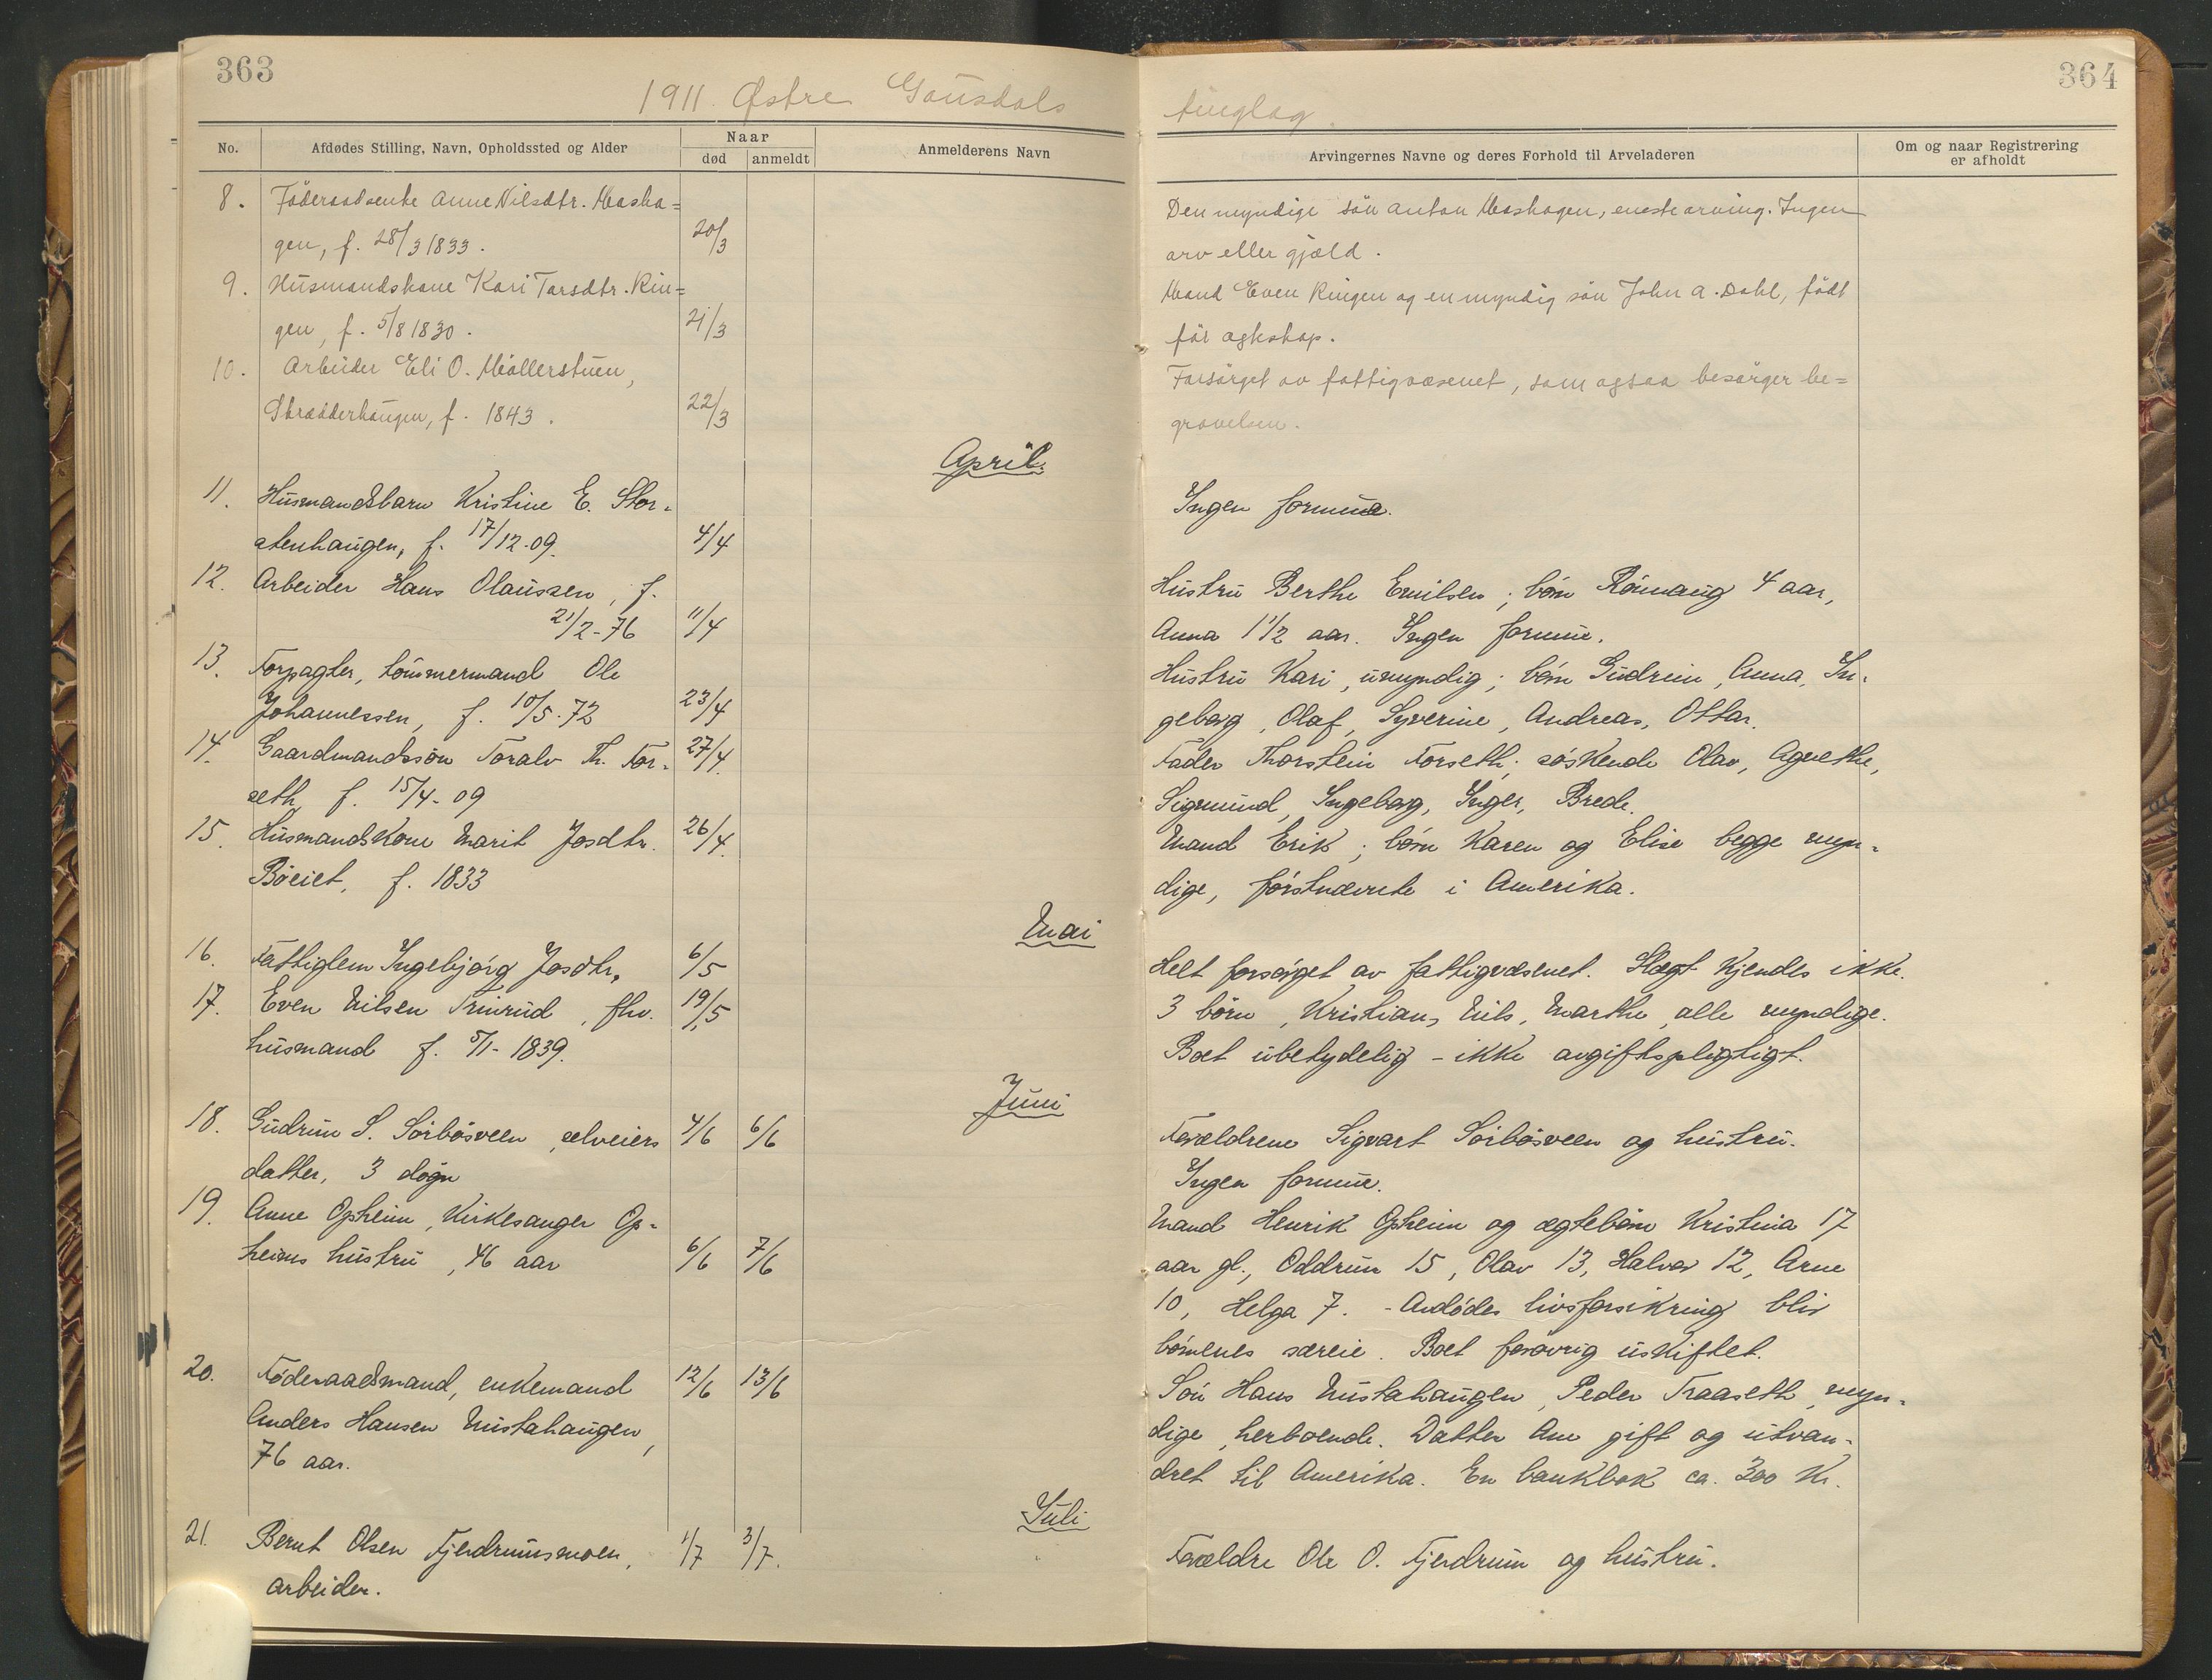 363
364
1911. Østre Gausdals tinglag.
No.
Afdødes Stilling, Navn, Opholdssted og Alder
Naar
død
anmeldt
Anmelderens Navn
Arvingernes Navne og deres Forhold til Arveladeren
Om og naar Registrering
er afholdt
8. Föderaadsenke Anne Nilsdtr.
gen, f. 28/3 1833. 20/3
Den myndige sön Anton enestearving. Ingen
arv eller gjæld.
9. Husmandskone Kari Tarsdtr. Rin=
gen, f. 5/8 1830. 21/3
Mand Even Ringen og en myndig sön John A. Dahl, född
för egteskap.
10. Arbeider Eli O. Möllerstuen,
Skrædderhaugen, f. 1843. 22/3
Forsörget av fattigvæsenet, som ogsaa besörger be=
gravelsen.
April.
11. Husmandsbarn Kristine E. Stor-
stenhaugen, f. 17/12-09. 4/4
Ingen formue.
12. Arbeider Hans Olaussen, f.
21/2-76 11/4
Hustru Berthe Emilsen; børn Rönnaug 4 aar,
Anna 1 1/2 aar. Ingen formue.
13. Forpagter, tømmermand Ole
Johannessen, f. 10/5-72 23/4
Hustru Kari, umyndig; børn Gudrun, Anna, In-
geborg, Olaf, Syverine, Andreas, Ottar.
14. Gaardmandssøn Toralv Th. For-
seth, f. 15/4-09 27/4.
Fader Thorstein Forseth; søskende Olav, Agnethe,
Sigmund, Ingeborg, Inger, Brede.
15. Husmandskone Marit Josdtr.
Bøeiet, f. 1833 26/4.
Mand Erik; børn Karen og Elise begge myn-
dige, førstnævnte i Amerika.
Mai
16. Fattiglem Ingebjørg Josdtr, 6/5
Helt forsørget av fattigvæsenet. Slægt kjendes ikke.
17. Even Nilsen Trinrud, fhv.
husmand f. 5/1-1839. 19/5
3 børn, Kristian, Nils, Marthe, alle myndige.
Boet ubetydelig - ikke avgiftspligtigt.
Juni
18. Gudrun S. Sørbøsveen, selveiers
datter, 3 døgn 4/6 6/6
Forældrene Sigvart Sørbøsveen og hustru.
Ingen formue.
19. Anne Opheim, kirkesanger Op-
heims hustru, 46 aar 6/6 7/6
Mand Henrik Opheim og ægtebørn Kristina 17
aar gl., Oddrun 15, Olav 13, Halvor 12, Arne
10, Helga 7. - Avdødes livsforsikring blir
børnenes særeie. Boet forøvrig uskiftet.
20. Føderaadsmand, enkemand
Anders Hansen Mustahaugen,
76 aar. 12/6 13/6
Søn Hans Mustahaugen, Peder Traaseth, myn-
dige, herboende. Datter Ane gift og utvan-
dret til Amerika. En bankbok ca. 300 kr.
Juli
21. Bernt Olsen Fjerdrumsmoen,
arbeider. 1/7 3/7.
Forældre Ole O. Fjerdrum og hustru.